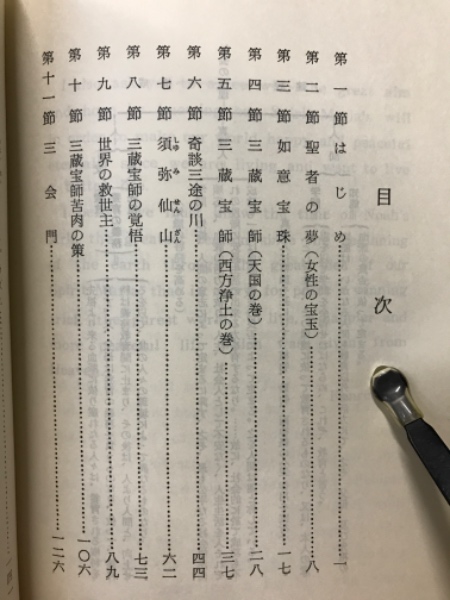 目次
第一節 はじめ……一
第二節 聖者の夢(女性の宝玉)……八
第三節 如意宝珠……一七
第四節 三蔵宝師(天国の巻)……二八
第五節 三蔵宝師(西方浄土の巻)……三七
第六節 奇談三途の川……四四
第七節 須弥仙山……六二
しゅみせんざん
第八節 三蔵宝師の覚悟……七三
第九節 世界の救世主……八九
第十節 三蔵宝師苦肉の策……一〇六
第十一節 三会門……一二六